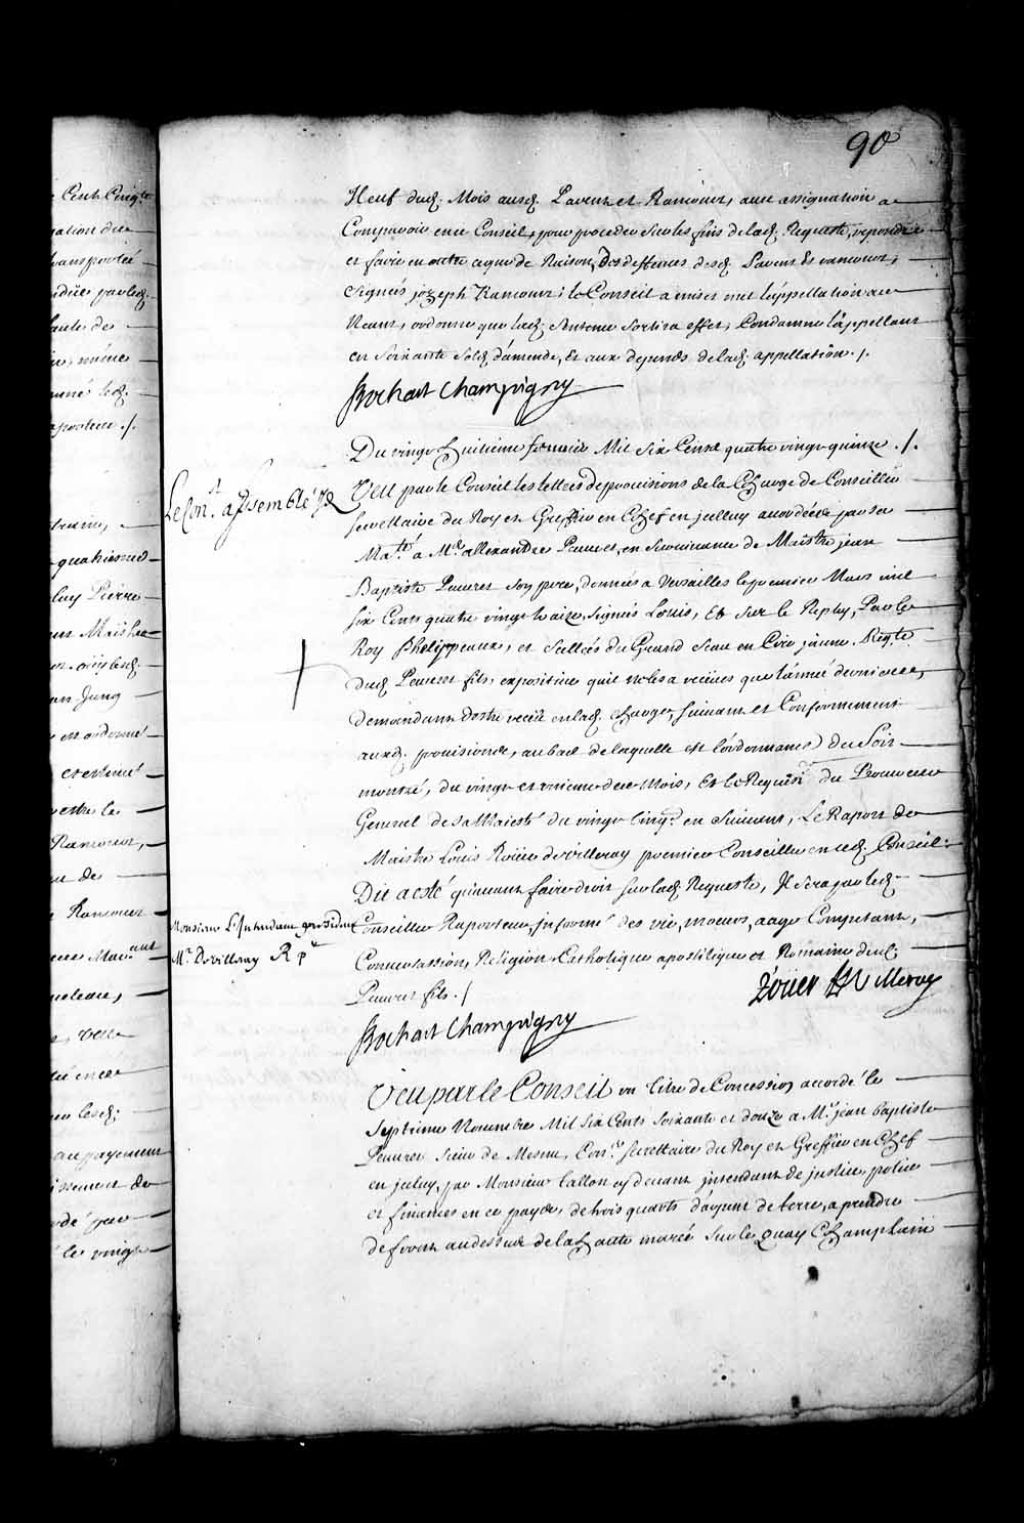 90
Neuf dud. Mois ausd. Pavent et Rancourt, avec assignation a
Comparoir en ce Conseil, pour proceder sur les fins de lad. Requeste, repondre
et faire en outre ce que de Raison, des deffences desd. Pavent et rancourt,
signées joseph Rancourt; le Conseil a mis et met l'appellation au
Neant, ordonne que lad. sentence sortira effet, Condamne l'appellant
en soixante sols d'amende, Et aux depends de lad. appellation ./.
Bochart Champigny
Du vingt huitieme fevrier Mil six Cents quatre vingt quinze ./.
Le Con.l assemblé
Veu par le Conseil les lettres de provisions de la Charge de Conseiller
Secrettaire du Roy et Greffier en Chef en jcelluy accordées par sa
Ma.té a M.e allexandre Peuvret, en survivance de Maistre jean
Baptiste Peuvret son pere, données a Versailles le premier Mars mil
six Cents quatre vingt treize, signées Louis, Et sur le Reply, Par le
Roy Phelippeaux, et scellées du Grand Seau en Cire jaune. Req.te
dud. Peuvret fils, expositive qu'il ne les a receues que l'année derniere,
demandant d'estre receu en lad. Charge, suivant et Conformement
auxd. provisions, au bas de laquelle est l'ordonnance de Soit
montré, du vingt et unieme de ce mois, Et le Requisi.re du Procureur
General de sa Majesté du vingt cinq.e en suivant, Le Raport de
Maistre Louis Roüer de villeray premier Conseiller en ced. Conseil:
Dit a esté qu'avant faire droit sur lad. Requeste, Il sera par led.
Monsieur L'Intendant president
Conseiller Raporteur, jnformé des vie, moeurs, aage Competant,
M.r De villeray R p.r
Conversassion, Religion Catholique apostolique et Romaine dud.
Peuvret fils ./.
Roüer De Villeray
Bochart Champigny
Veu par le Conseil un titre de Concession accordé le
Septieme Novembre Mil six Cents soixante et douze a M.e jean baptiste
Peuvret Sieur de Mesnu, Con.er Secrettaire du Roy et Greffier en Chef
en jceluy, par Monsieur tallon cy devant jntendant de justice, police
et finances en ce pays, de trois quarts d'arpent de terre, a prendre
de front au dessus de la haute marée sur le Quay Champlain